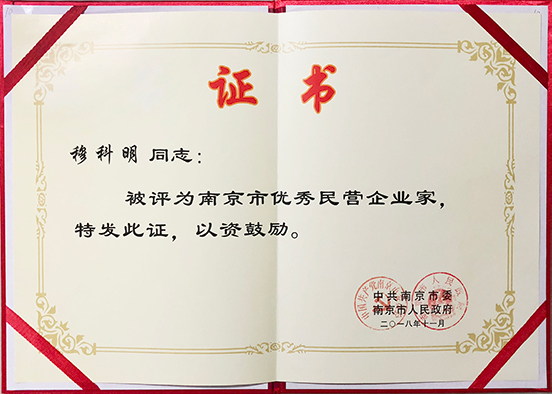 证书
穆科明 同志：
被评为南京市优秀民营企业家，
特发此证，以资鼓励。
中共南京市委
南京市人民政府
二〇一八年十一月